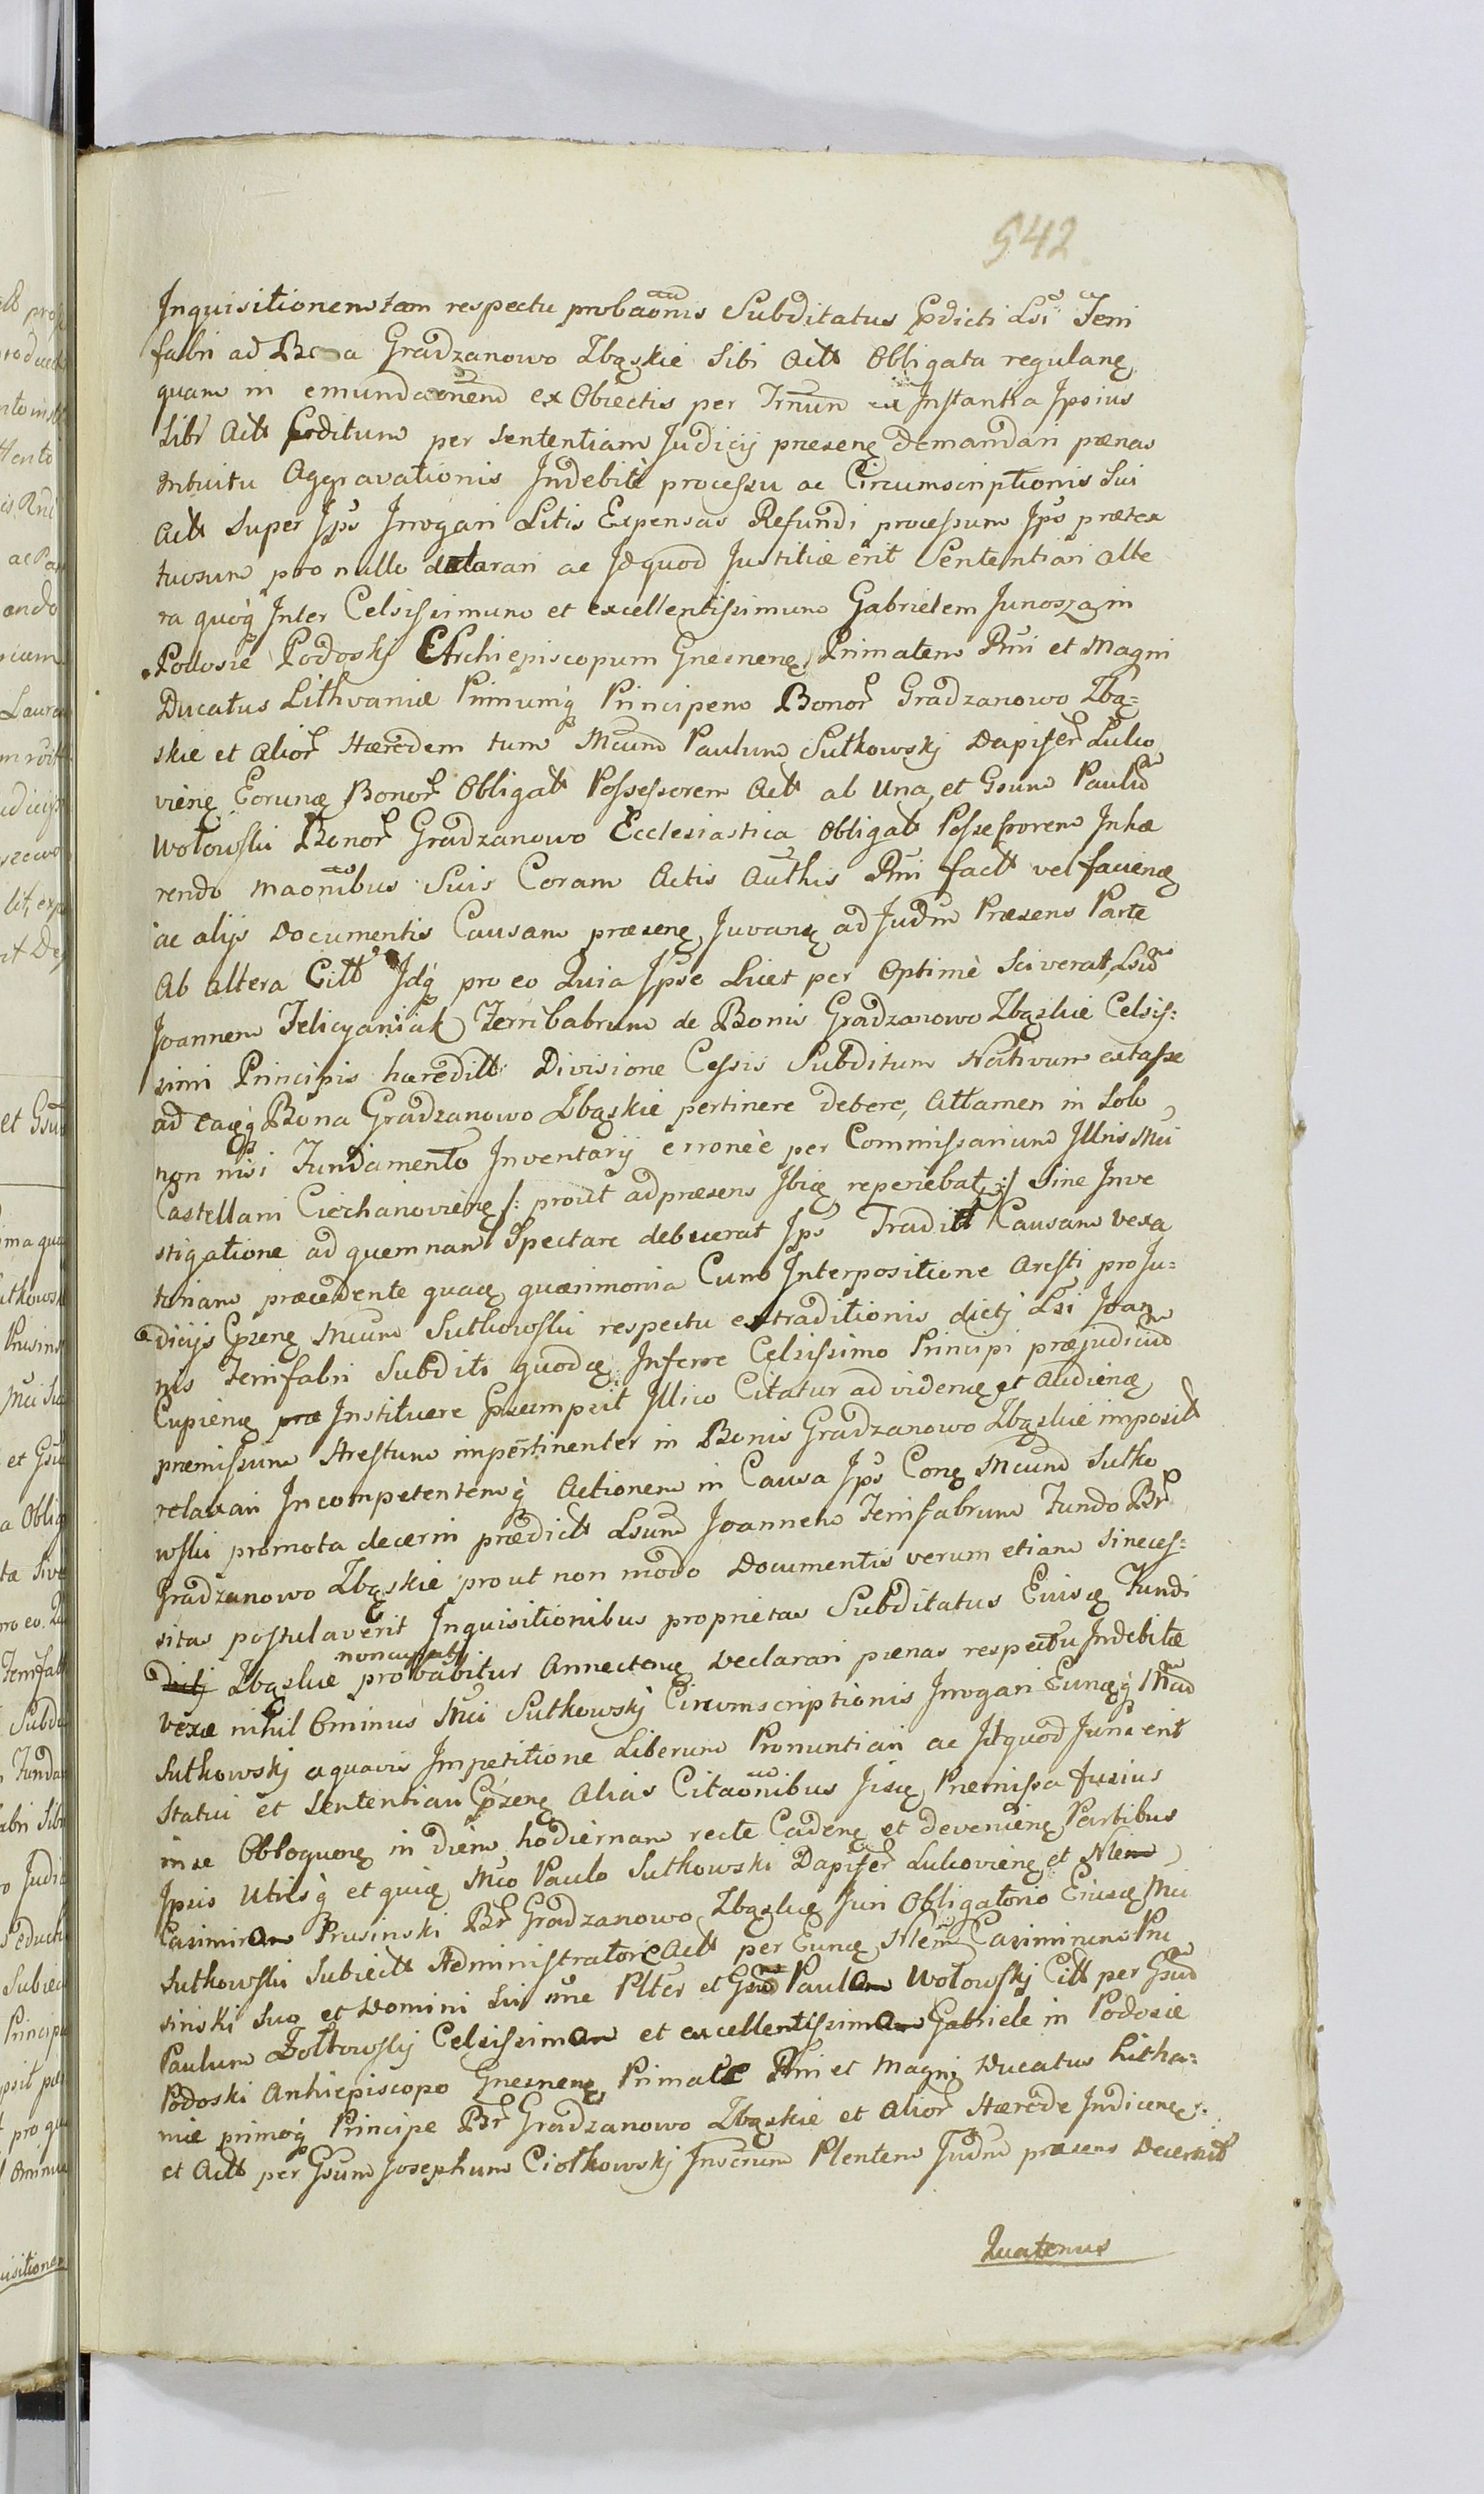 542
Inquisitionem tam respectu probaonis Subditatus Ppdicti Lsi Feri
fabri ad Bona Gradzanowo Zbąskie Sibi Actt Obligata regulanę
quam in emundaonem ex Obiectis per Trnum ex Instantia Ipsius
Sibi Actt Editum per Sententiam Judicij præsenę Demandari pænas
Intuitu Aggravationis Indebitè processu ac Circumscriptionis Sui
Actt Super Ips Irrogari Litis Expensas Refundi processum Ips prætex
tuosum pro nullo declarari ac Id quod Justitiæ erit Sententiari alte
ra quoq Inter Celsissimum et excellentissimum Gabrielem Junosza in
Podosie Podoskj Archiepiscopum Gnesnenę Primatem Rni et Magni
Ducatus Lithvaniæ Primumq Principem Bonor Gradzanowo Zbą=
skie et alior Hæredem tum Mcum Paulum Sutkowskj Dapifer Luko
vienę Eorumę Bonor Obligatt Possessorem Actt ab Una, et Gsum Paulu
Wołowski Bonor Gradzanowo Ecclesiastica Obligatt Possessorem Inhæ
rendo maonibus Suis Coram Actis Authis Rni factt vel facienę
ac alijs Documentis Causam præsenę Juvanę ad Judm Præsens Parte
Ab altera Citt Idq pro eo Quia Ipse Licet per Optimè Sciverat, Lsu
Joannem Felicyaniak Ferrifabrum de Bonis Gradzanowo Zbąskie Celsis:
simi Principis hæreditt Divisione Cessis Subditum Nativum extasse
ad eaęq Bona Gradzanowo Zbąskie pertinere debere, Attamen in Solo
non nisi Fundamento Inventarij erroneè per Commissarium Illris Mci
Castellani Ciechanovienę /: prout ad præsens Ibię reperiebat :/ Sine Inve
stigatione ad quemnam Spectare debuerat Ips Traditt Causam vexa
toriam præcedente quaę quærimonia Cum Interpositione Aresti pro Ju=
dicijs Ppsenę Mcum Sutkowski respectu extraditionis dictj Lsi Joan
nis Ferrifabri Subditi quodę Inferre Celsissimo Principi præjudiciu
Cupienę Instituere Præsumpsit Illico Citatur ad videnę et Audienę
præmissum Arestum impertinenter in Bonis Gradzanowo Zbąskie impositt
relaxari Incompetentemq Actionem in Causa Ips Conę Mcum Sutko
wski promota decerni prædictt Lsum Joannem Ferrifabrum Fundo Br
Gradzanowo Zbąskie prout non modo Documentis verum etiam Si neces=
sitas postulaverit Inquisitionibus proprietas Subditatus Eiusę Fundi
Zbąskie probabitur Annectenę Declarari pænas respectu Indebitæ
vexæ nihil Ominus Mci Sutkowskj Circumscriptionis Irrogari Eunęq Mcu
Sutkowskj a quavis Impetitione Liberum Pronuntiari ac Id quod Juris erit
Statui et Sententiari Ppsenę Alias Citaonibus Jisę Præmissa fusius
in se Obloquenę in Diem hodiernam recte Cadenę et devenienę Partibus
Ipsis Utrisq et quię Mco Paulo Sutkowski Dapifer Lukovienę et Nlem
Casimiro Prusinski Br Gradzanowo Zbąskię Juri Obligatorio Eiusę Mci
Sutkowski Subiectt Administratore Actt per Eunę Nlem Casimirum Pru
sinski Suo et Domini Sui nne Plter et Gsud Paulo Wołowskj Citt per Gsud
Paulum Zołtowskj Celsissimo et excellentissimo Gabriele in Podosie
Podoski Archiepiscopo Gnesnenę Primate Rni et Magni Ducatus Litha=
niæ primoq Principe Br Gradzanowo Zbąskie et alior Hærede Indicenę:
et Actt per Gsum Josephum Ciołkowskj Inscrum Plentem Judm præsens Decernit
Quatenus